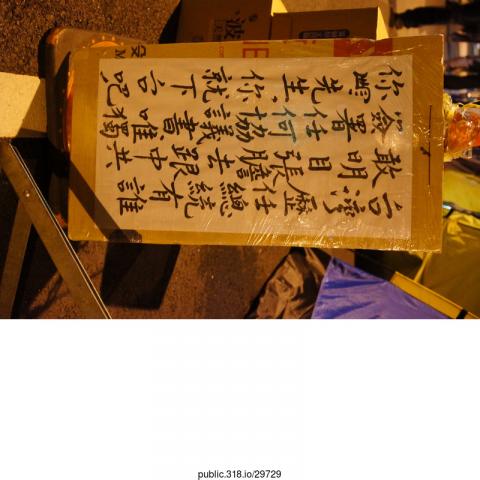 台灣歷任總統有誰
敢明目張膽去跟中共
簽署任何協議書唯獨
你馬先生你就下台吧
波